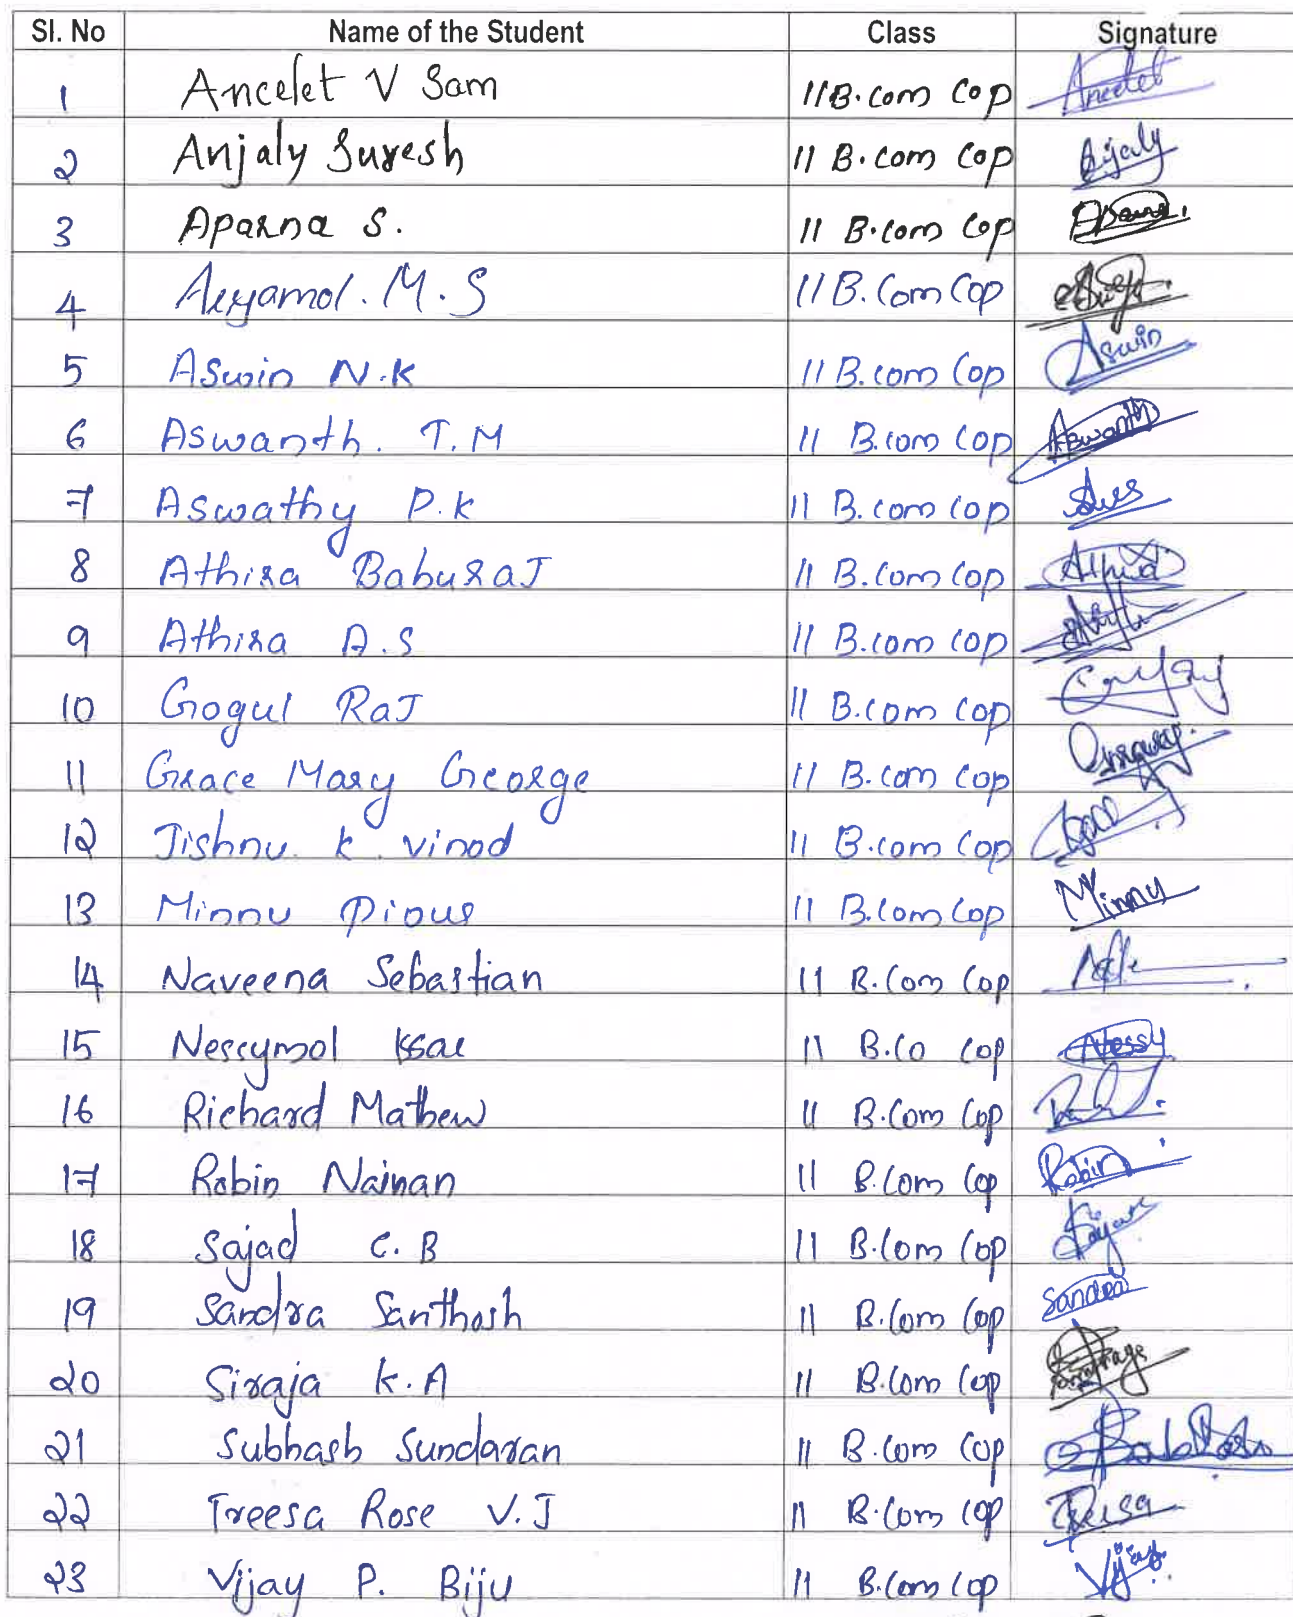 Sl. No Name of the Student Class Signature
1 Ancelet V Sam 11 B.com Cop Ancelet
2 Anjaly Suresh 11 B.com Cop Anjaly
3 Aparna S. 11 B.com Cop
4 M.S 11 B.Com Cop
5 Aswin N.K 11 B.com Cop Aswin
6 Aswanth. T.M 11 B.com Cop Aswanth
7 Aswathy P.K 11 B.com Cop
8 Athira BaburaJ 11 B.com Cop Athira
9 Athira A.S 11 B.com Cop
10 Gogul RaJ 11 B.com Cop
11 Grace Mary George 11 B.com Cop
12 Jishnu. K. Vinod 11 B.com Cop
13 Minnu Pious 11 B.com Cop Minnu
14 Naveena Sebastian 11 B.Com Cop
15 Nessymol Issac 11 B.Co Cop Nessy
16 Richard Mathew 11 B.Com Cop
17 Robin Nainan 11 B.Com Cop Robin
18 Sajad C.B 11 B.Com Cop
19 Sandra Santhosh 11 B.Com Cop Sandra
20 Siraja K.A 11 B.Com Cop
21 Subhash Sundaran 11 B.Com Cop
22 Treesa Rose V.J 11 B.Com Cop Treesa
23 Vijay P. Biju 11 B.Com Cop Vijay